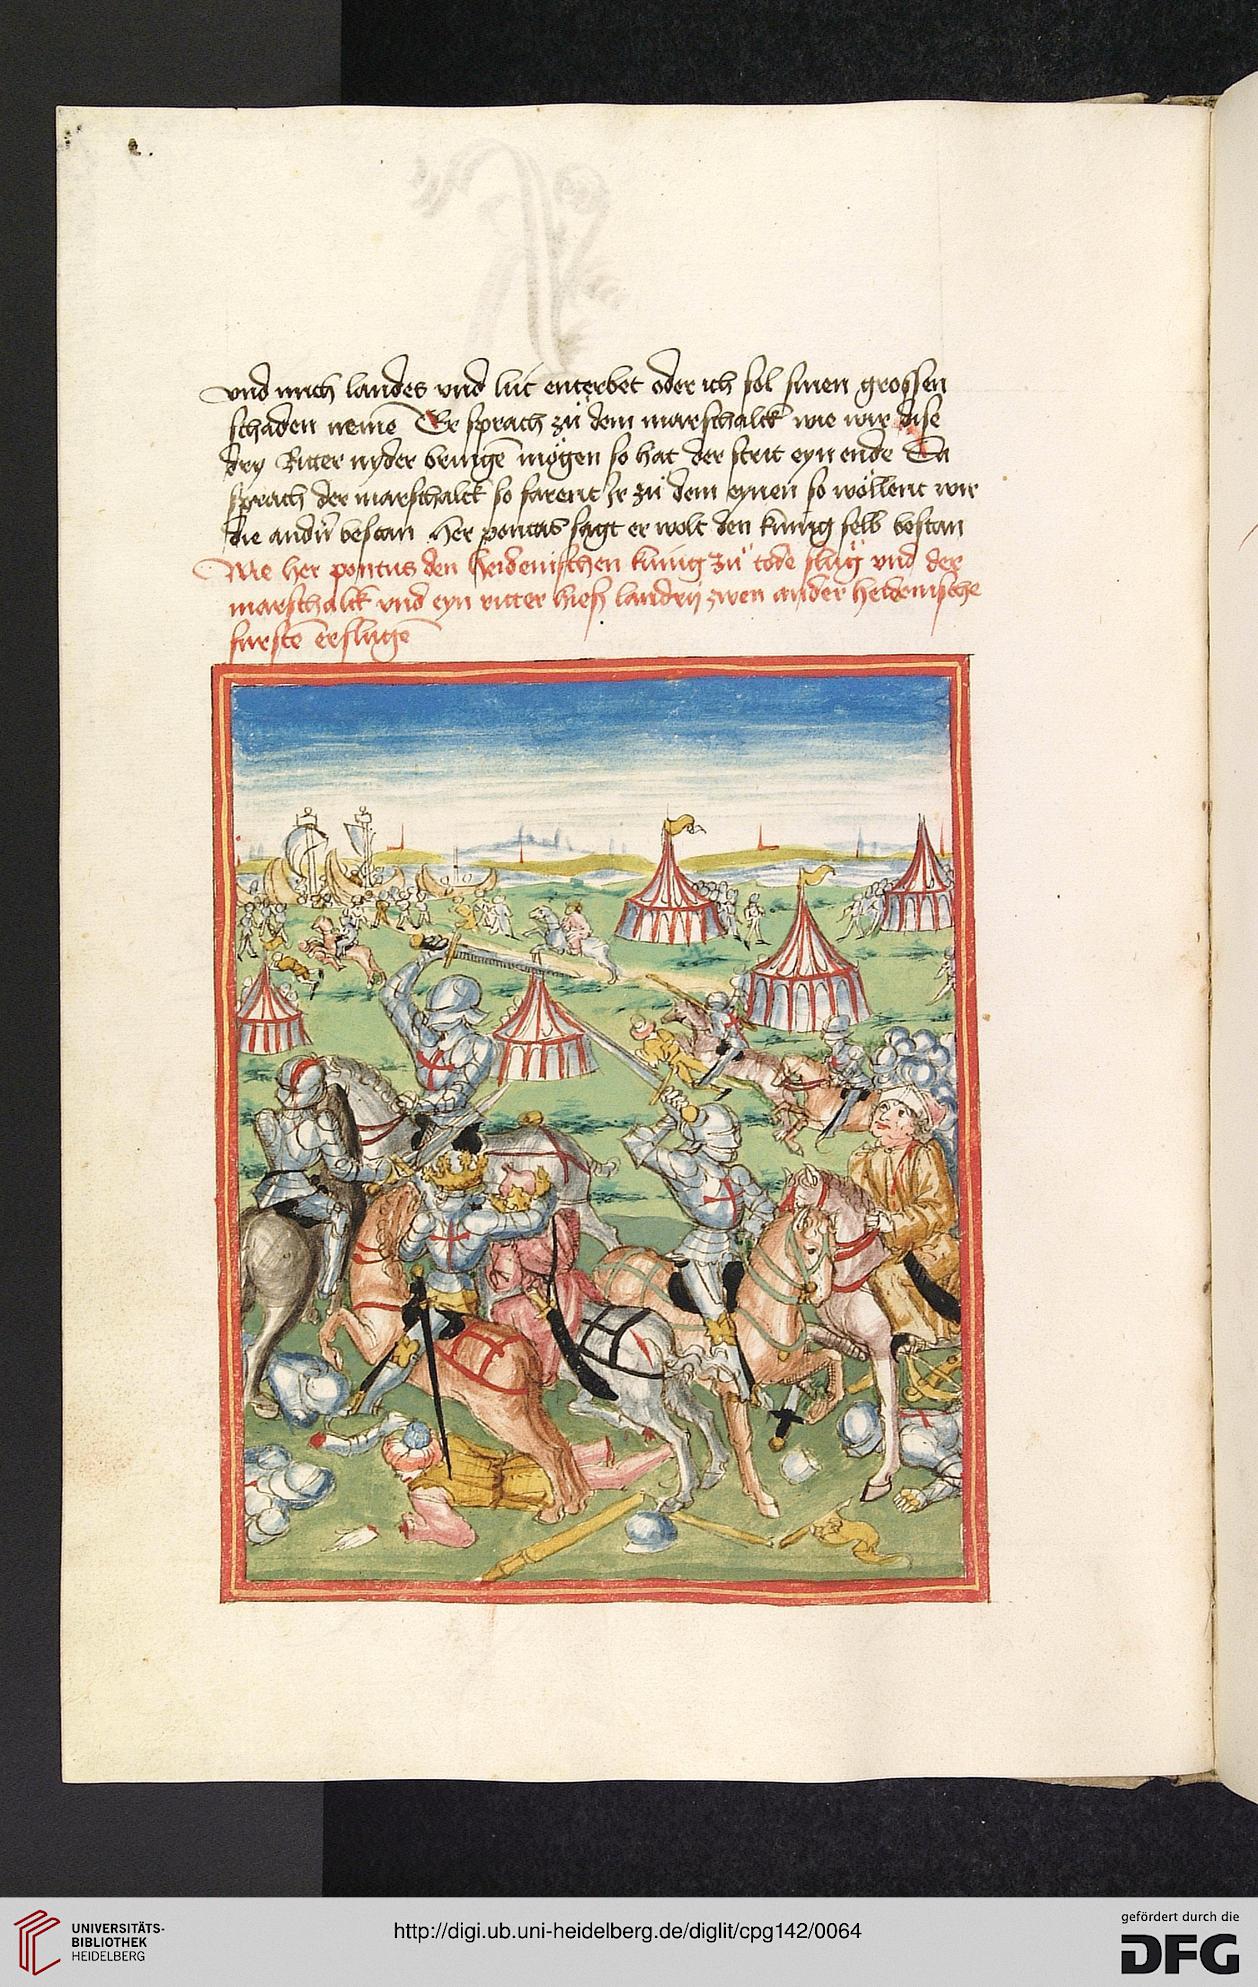 und mich landes und lüt enterbet oder ich sol sinen grossen
schaden neme Er sprach zü dem marschalck wie wir dise
dry Ritter nyder bringe mögen so hat der strit eyn ende Da
sprach der marschalck so farent Ir zü dem eynen so wöllent wir
die andn bestan her pontus sagt er wolt den künig selb bestan
Wie her pontus den heidenischen künig zü tode slüg und der
marschalck und eyn ritter hieß landry zwen ander heidenische
fürste erslüge
UNIVERSITÄTS-
BIBLIOTHEK
HEIDELBERG
http://digi.ub.uni-heidelberg.de/diglit/cpg142/0064
gefördert durch die
DFG